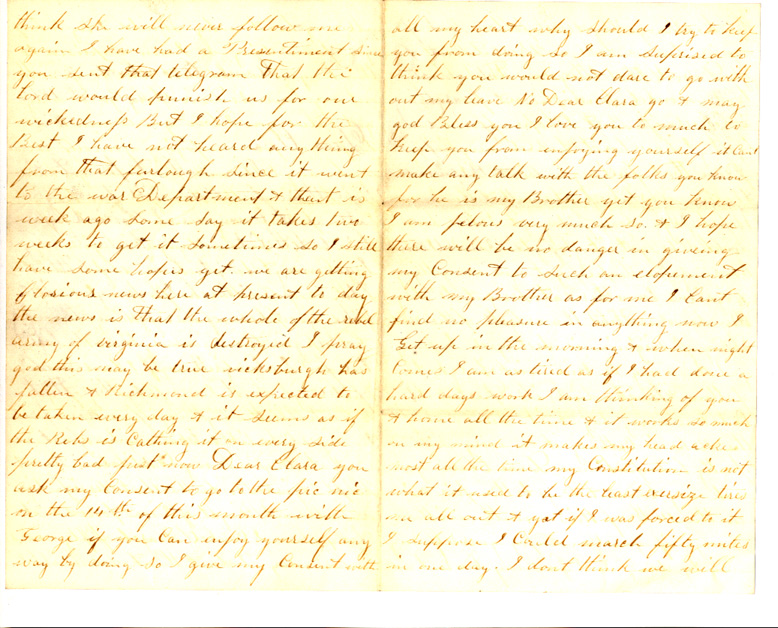 think she will never follow me
again I have had a Presentiment since
you sent that telegram That the
lord would punish us for our
wickedness But I hope for the
Best I have not heard anything
from that furlough since it went
to the war Department & that is
week ago some say it takes two
weeks to get it sometimes so I still
have some hopes yet. we are getting
Glosious news here at present to day
the news is that the whole of the rebel
army of virginia is destroyed I pray
god this may be true vicksburgh has
fallen & Richmond is expected to
be taken every day & it seems as if
the Rebs is Catching it on every side
pretty bad just now Dear Clara you
ask my Consent to go to the pic nic
on the 14th of this month with
George if you Can enjoy yourself any
way by doing so I give my Consent with
all my heart why should I try to keep
you from doing so I am suprised to
think you would not dare to go with
out my leave No Dear Clara go & may
god Bless you I love you to much to
keep you from enjoying yourself it Cant
make any talk with the folks you know
for he is my Brother yet you know
I am jelous very much so. & I hope
there will be no danger in giveing
my Consent to such an elopement
with my Brother as for me I Cant
find no pleasure in anything now I
Get up in the morning & when night
Comes I am as tired as if I had done a
hard days work I am thinking of you
& home all the time & it works so much
on my mind it makes my head ache
most all the time my Constitution is not
what it used to be the least exersize tires
me all out & yet if I was forced to it
I suppose I Could march fifty miles
in one day. I dont think we will